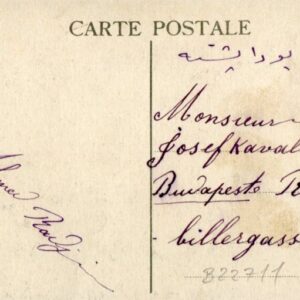 CARTE POSTALE
بودابشته
Monsieur
Josef Kaval
Budapeste R
billergass
B22711